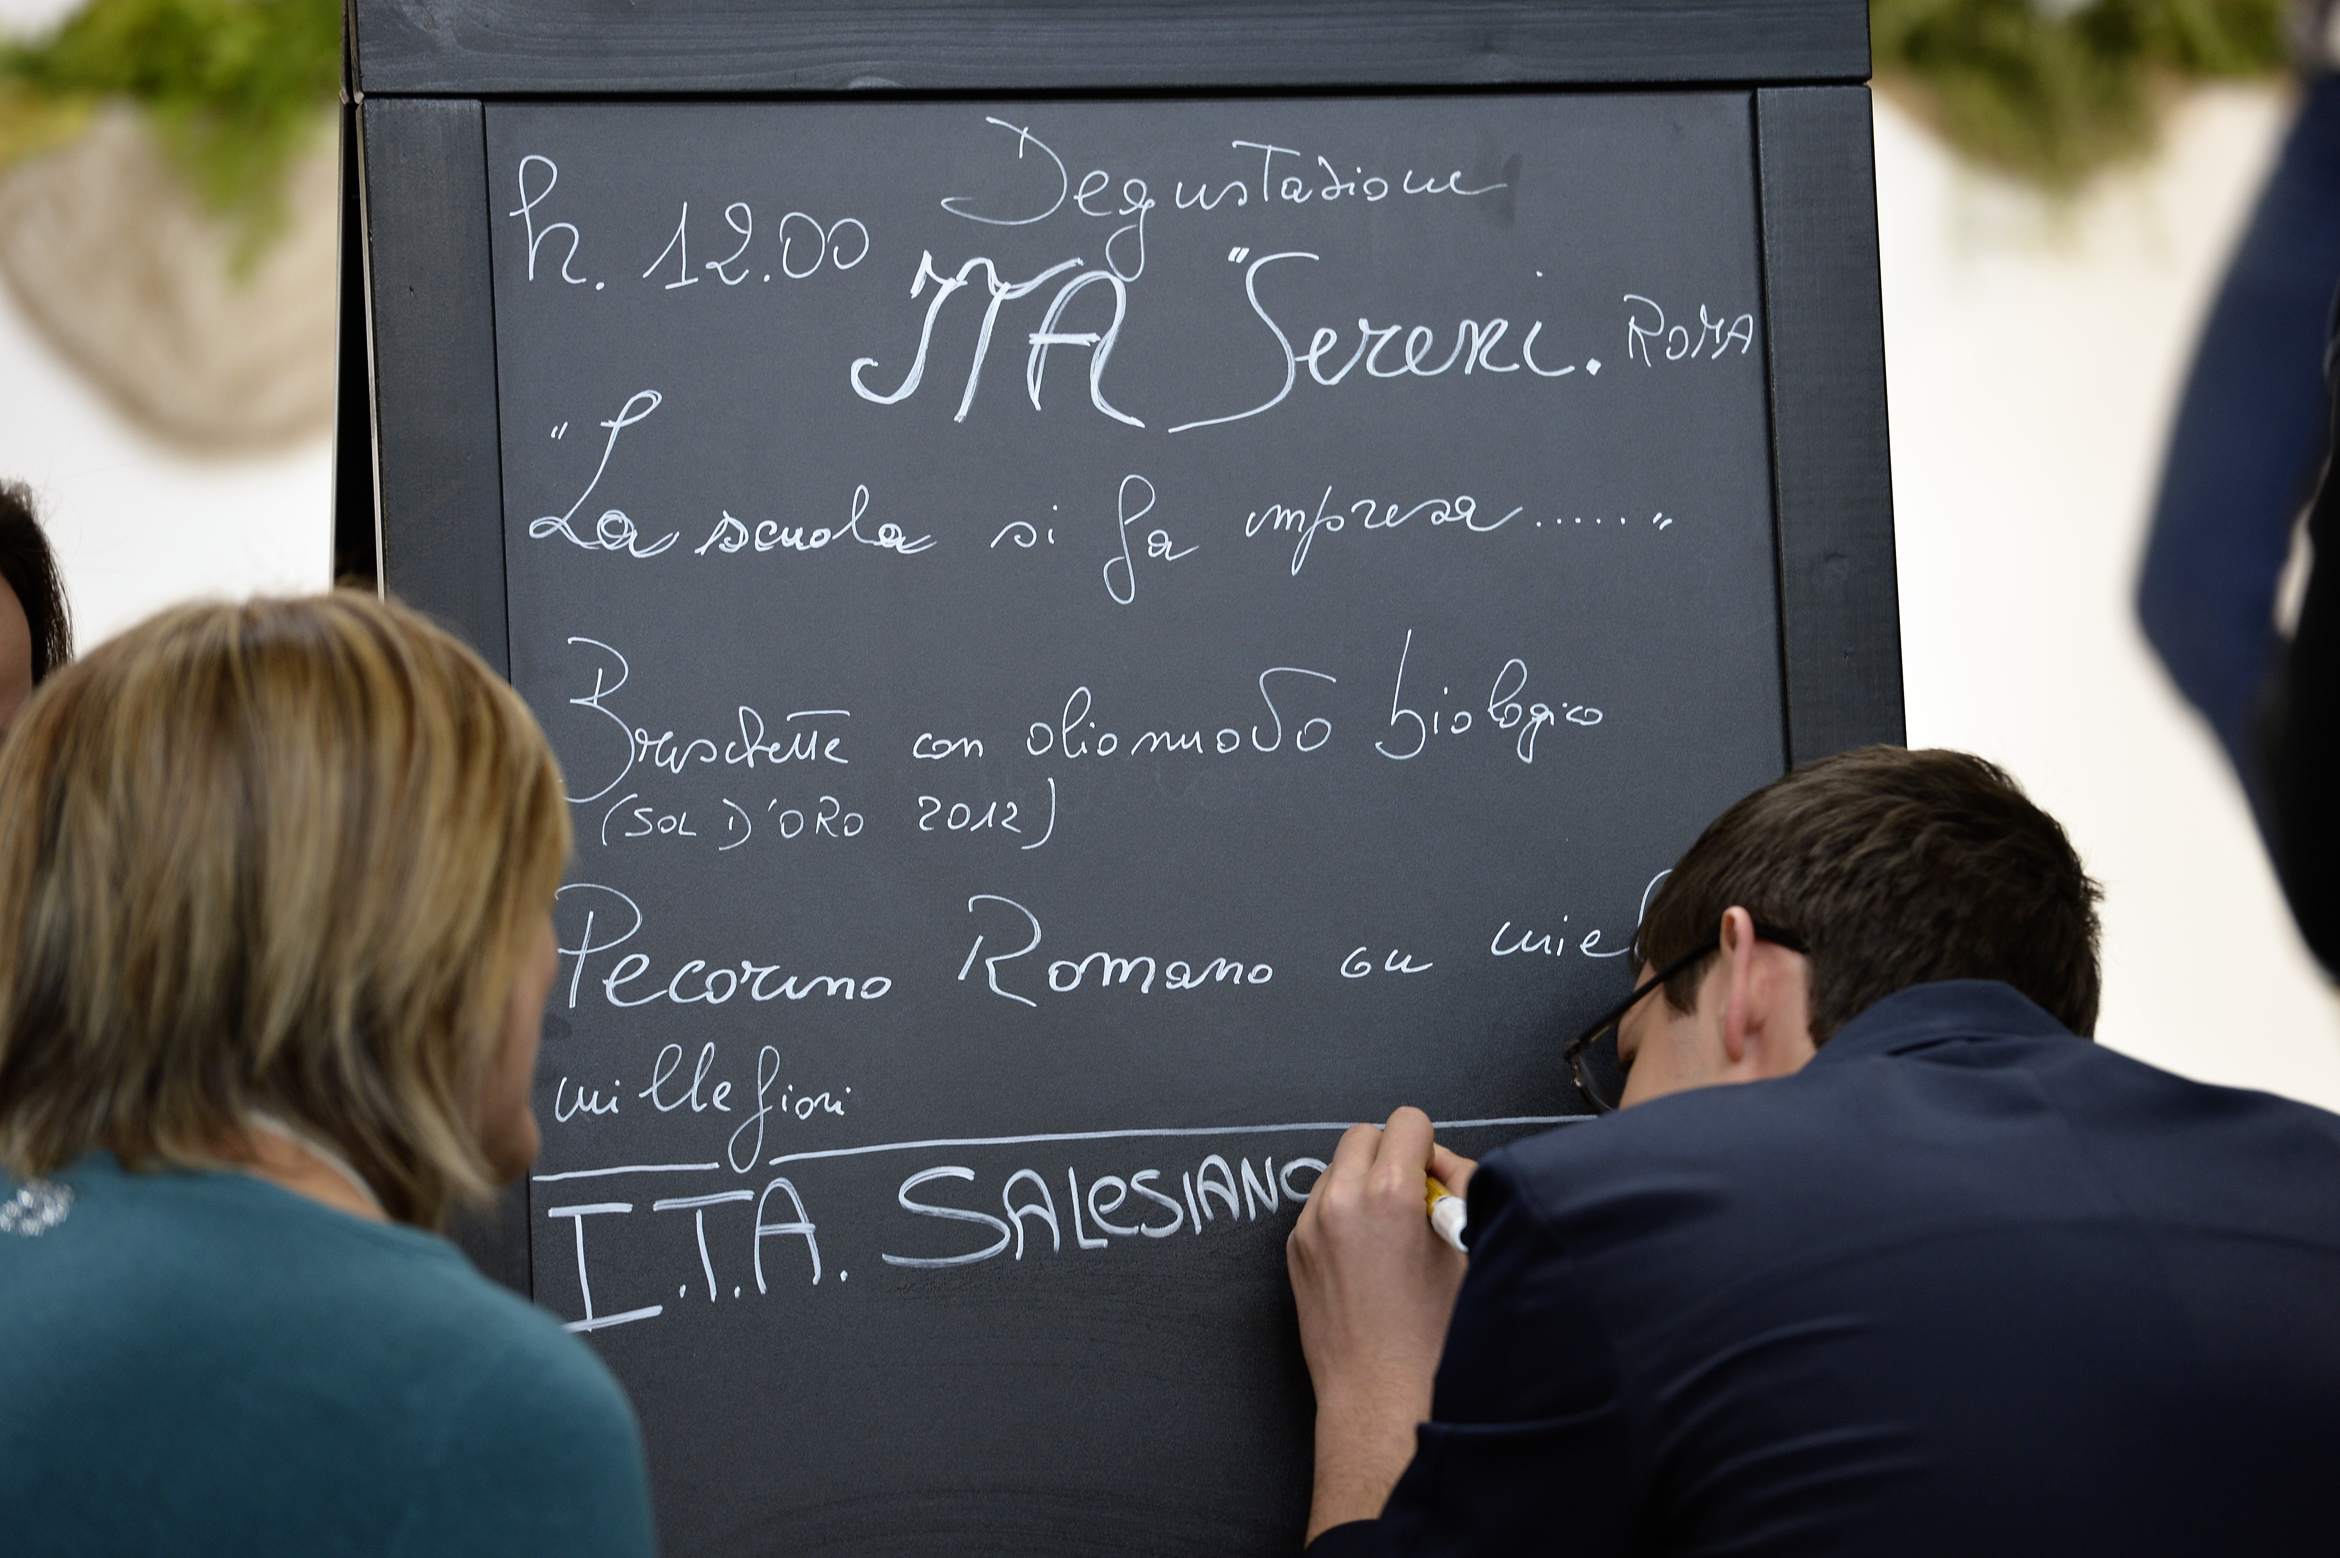 Degustazione
h. 12.00
ITA "Sereni. ROMA
"La scuola si fa impresa......"
Bruschette con olio nuovo biologico
(SOL D'ORO 2012)
Pecorino Romano con
millefiori
I.T.A. SALESIANO